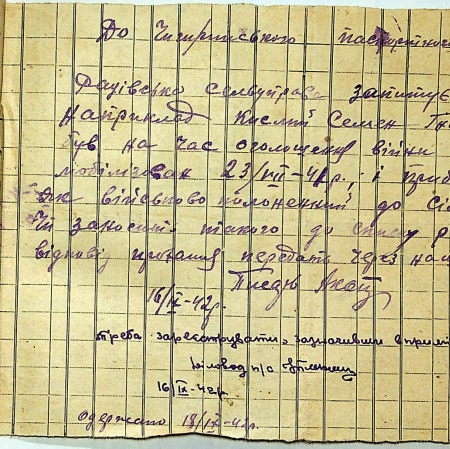 До Чигиринського паспортного
Рацівсько сельуправа запитує
Наприклад Кислий Семен Гн
був на час оголошення війни
мобілізован 23/VII-41р., і приб
як військово полоненний до Сіл
Чи заносить такого до списку р
відповід прохання передать через наш
16/IX-42р.
треба зареєструвати, зазначивши в примі
Діловод п/а
16/IX-42р
Одержано 18/IX-42р.